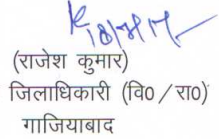 (राजेश कुमार)
जिलाधिकारी (वि०/रा०)
गाजियाबाद